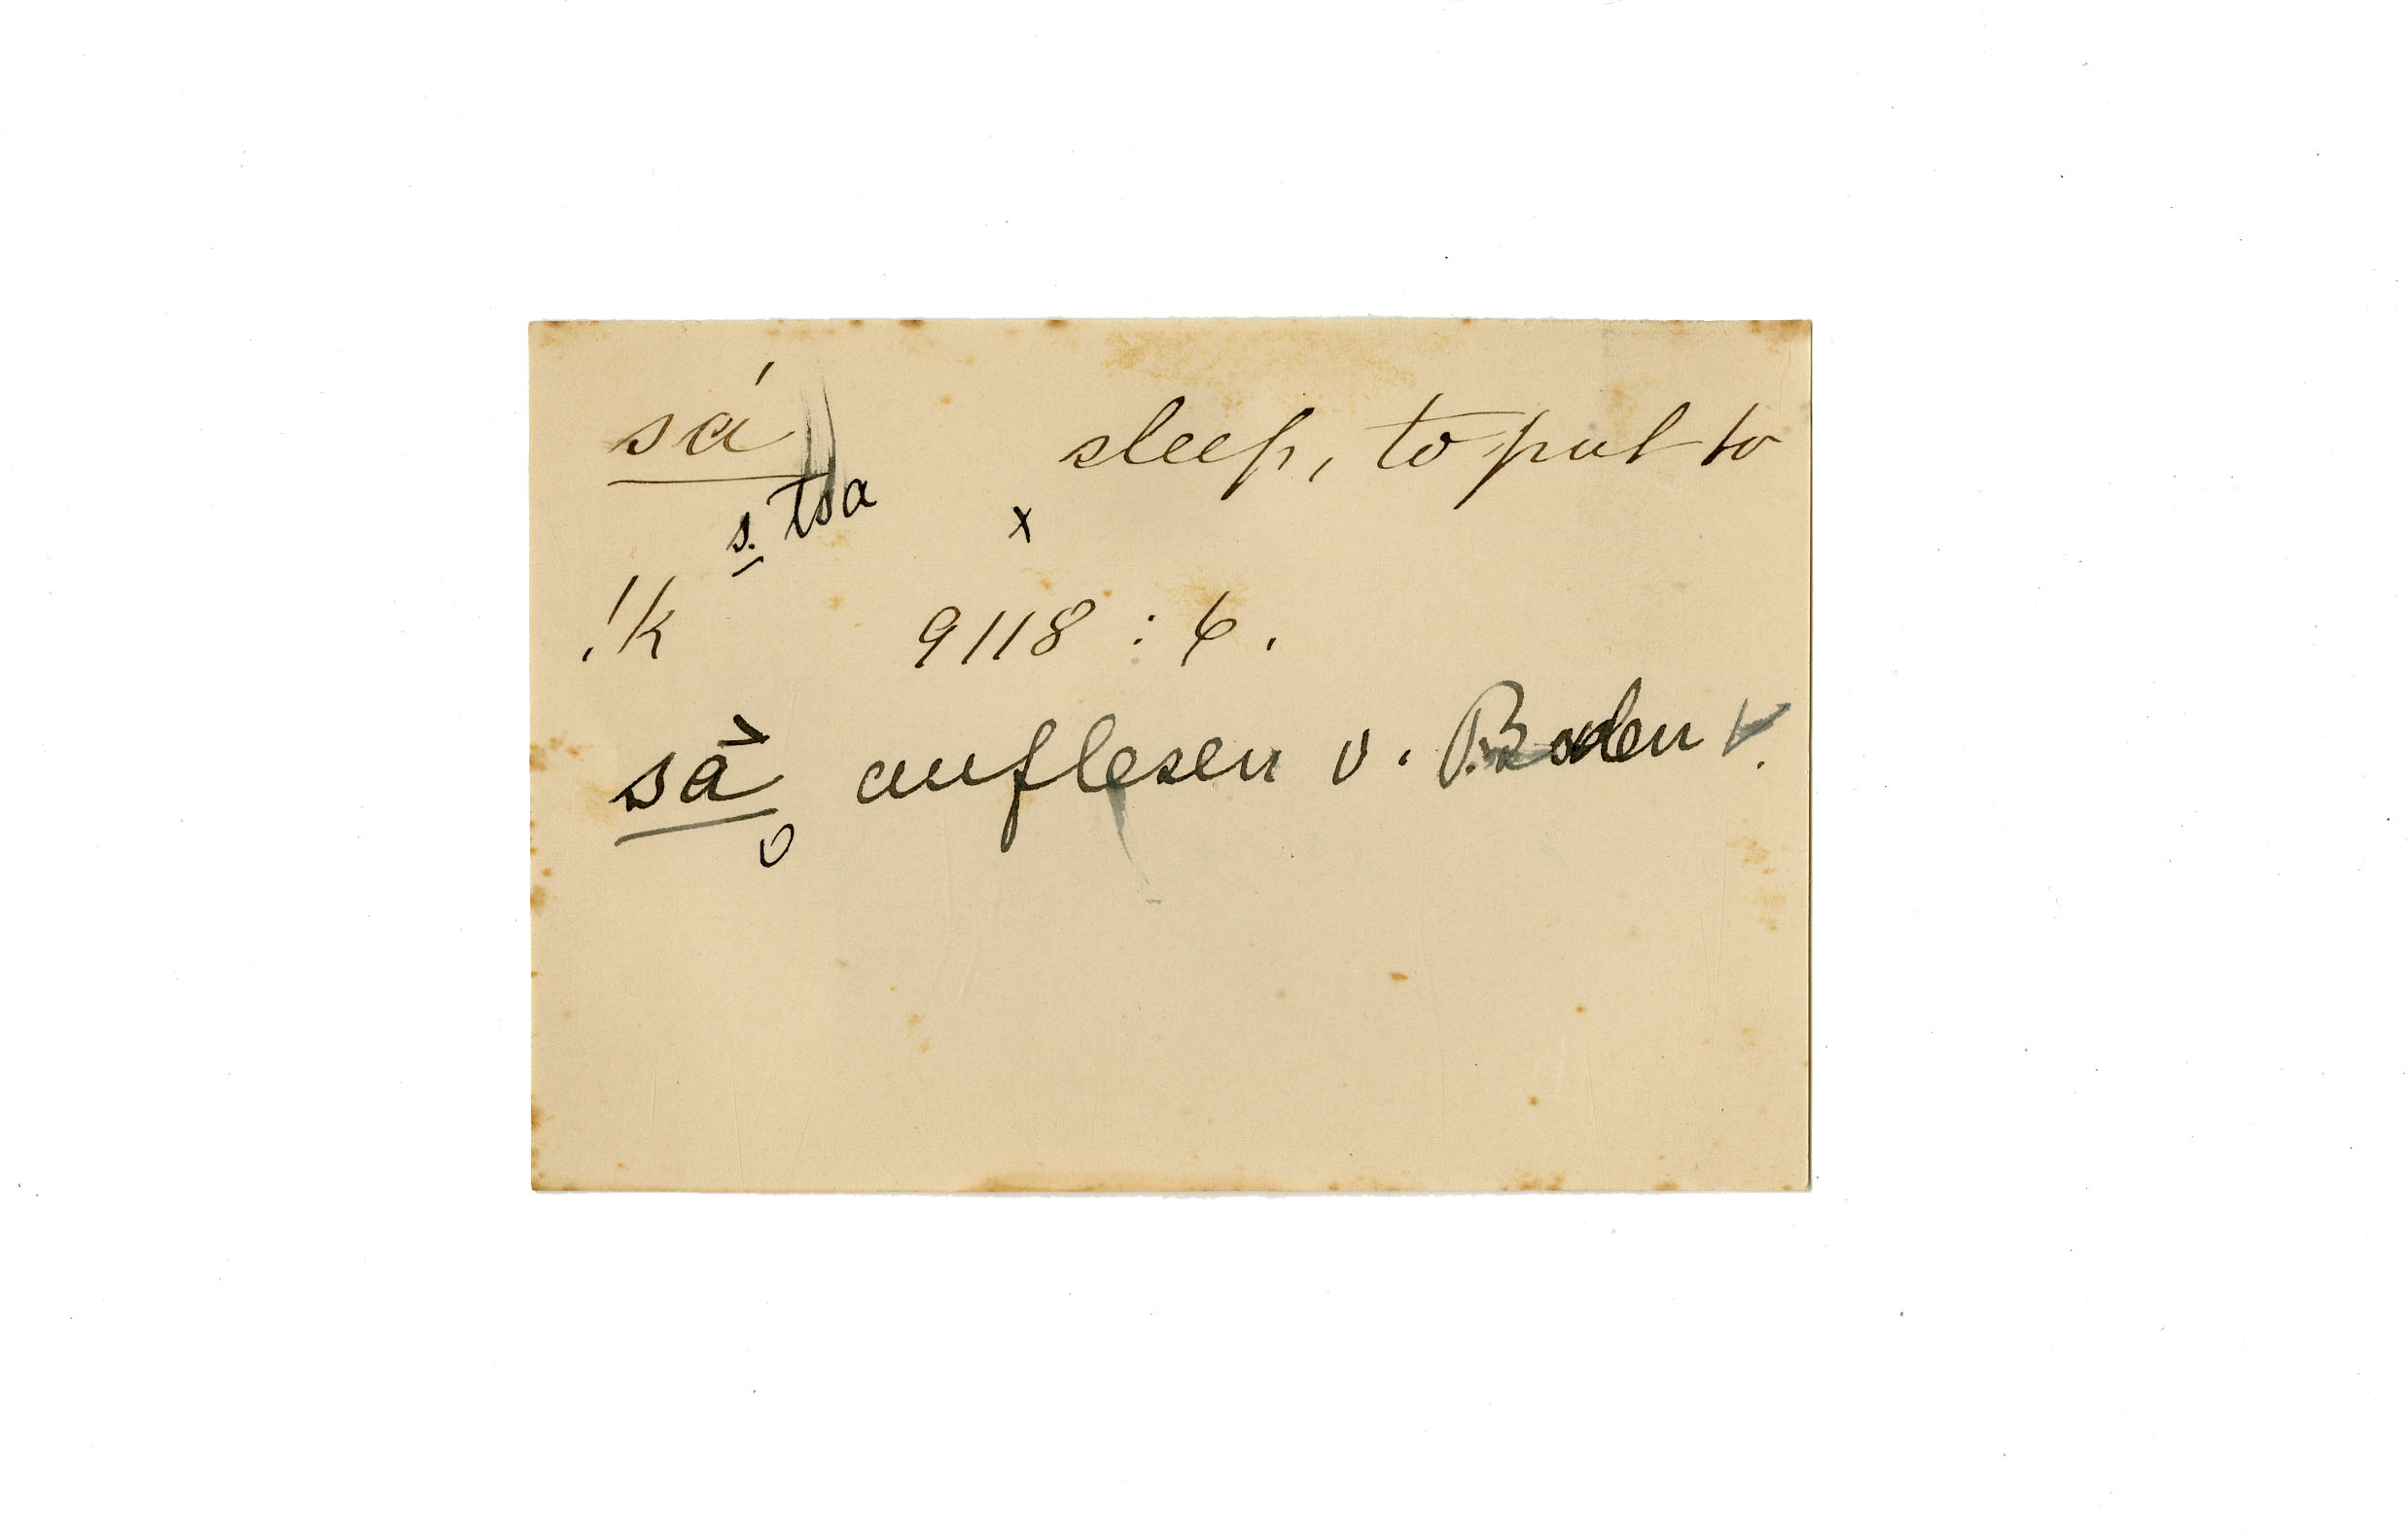 sá sleep, to put to
s. tsa x
!k 9118 : 6.
sā̀ auflesen v. Boden V.
o